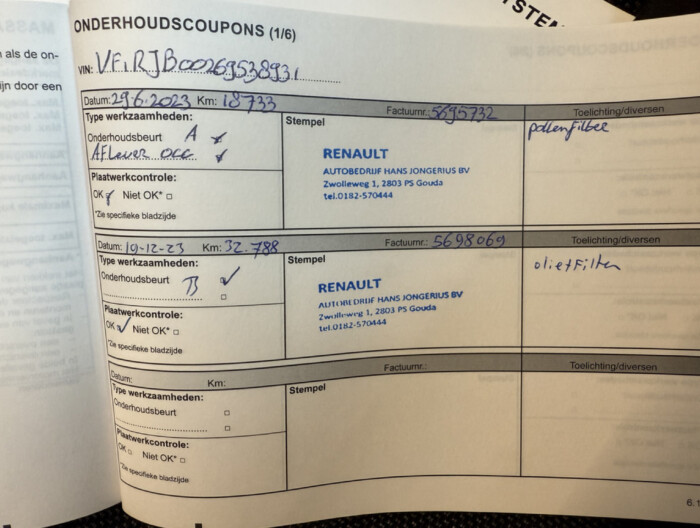 STEM
ONDERHOUDSCOUPONS (1/6)
als de on-
ijn door een
VIN: VF1RJB00269538931
Datum: 29.6.2023 Km: 18733 Factuurnr.: 5695732 Toelichting/diversen
Type werkzaamheden:
Stempel
pollenfilter
Onderhoudsbeurt A
Aflever occ
RENAULT
AUTOBEDRIJF HANS JONGERIUS BV
Zwolleweg 1, 2803 PS Gouda
tel.0182-570444
Plaatwerkcontrole:
OK Niet OK*
*Zie specifieke bladzijde
Datum: 19-12-23 Km: 32.788 Factuurnr.: 5698069 Toelichting/diversen
Type werkzaamheden:
Stempel
olie+Filter
Onderhoudsbeurt B
RENAULT
AUTOBEDRIJF HANS JONGERIUS BV
Zwolleweg 1, 2803 PS Gouda
tel.0182-570444
Plaatwerkcontrole:
OK Niet OK*
*Zie specifieke bladzijde
Datum: Km: Factuurnr.: Toelichting/diversen
Type werkzaamheden:
Stempel
Onderhoudsbeurt
Plaatwerkcontrole:
OK Niet OK*
*Zie specifieke bladzijde
6.1